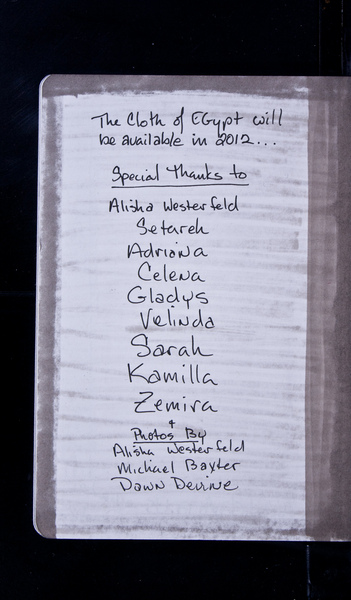 The Cloth of Egypt will
be available in 2012...
Special Thanks to
Alisha Westerfeld
Setareh
Adriana
Celena
Gladys
Velinda
Sarah
Kamilla
Zemira
+
Photos By
Alisha Westerfeld
Michael Baxter
Dawn Devine